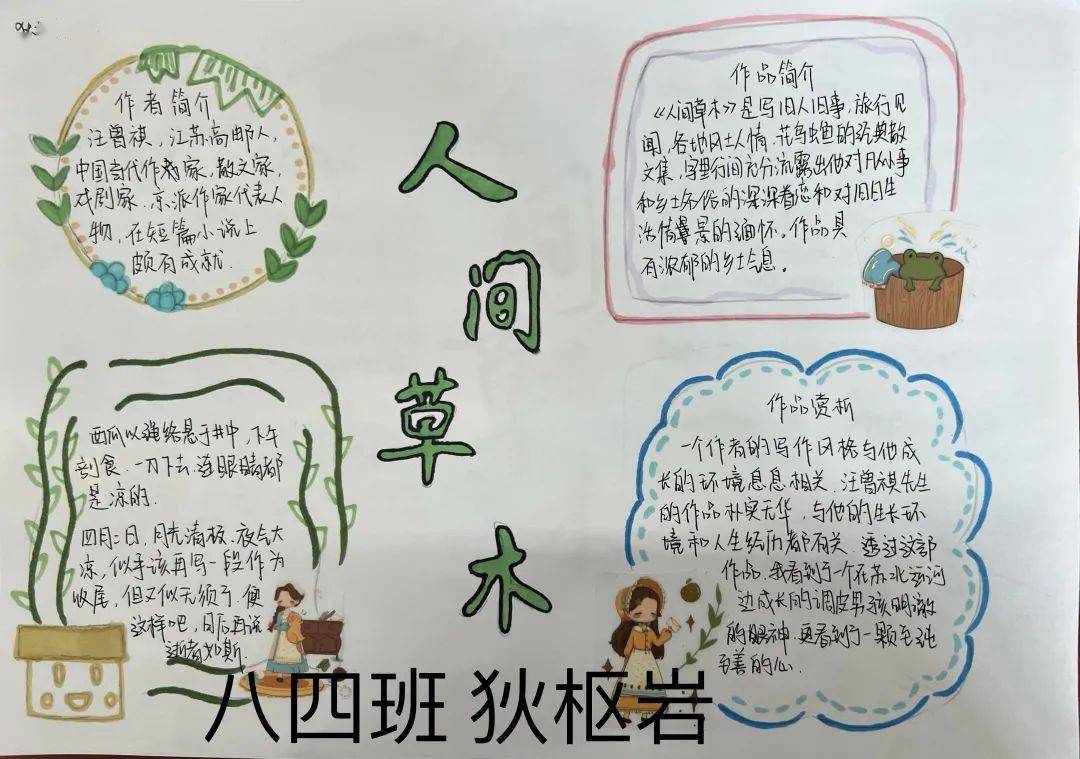 作者简介
汪曾祺，江苏高邮人，
中国当代作家，散文家，
戏剧家，京派作家代表人
物，在短篇小说上
颇有成就.
人间草木
作品简介
《人间草木》是写旧人旧事，旅行见
闻，各地风土人情，花鸟虫鱼的经典散
文集，字里行间充分流露出他对凡人小事
和乡土名俗的深深眷恋和对旧日生
活情景的缅怀。作品具
有浓郁的乡土气息。
西瓜以绳络悬于井中，下午
剖食，一刀下去，连眼睛都
是凉的.
四月二日，月光清极，夜气大
凉，似乎该再写一段作为
收尾，但又似无须了，便
这样吧，日后再说
逝者如斯.
作品赏析
一个作者的写作风格与他成
长的环境息息相关，汪曾祺先生
的作品朴实无华，与他的生长环
境和人生经历都有关，透过这部
作品，我看到了一个在苏北运河
边成长的调皮男孩明澈
的眼神，更看到了一颗至纯
至善的心.
八四班 狄枢岩